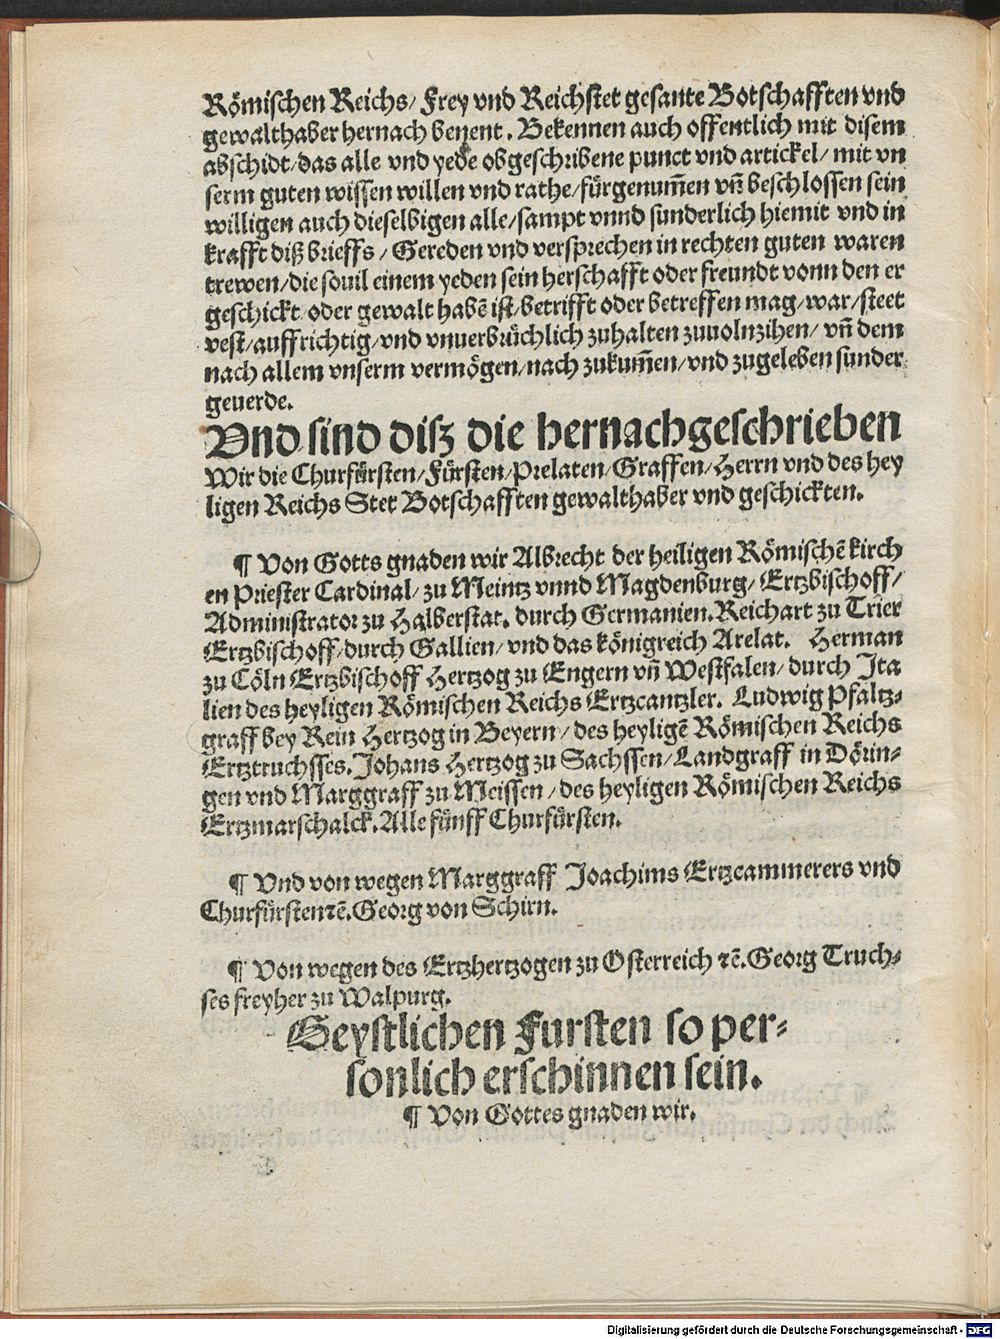 Römischen Reichs/ Frey vnd Reichstet gesante Botschafften vnd
gewalthaber hernach benent. Bekennen auch offentlich mit disem
abschidt/ das alle vnd yede obgeschribene punct vnd artickel/ mit vn
serm guten wissen willen vnd rathe/ fürgenum̃en vñ beschlossen sein
willigen auch dieselbigen alle/ sampt vnnd sunderlich hiemit vnd in
krafft diß brieffs/ Gereden vnd versprechen in rechten guten waren
trewen/ die souil einem yeden sein herschafft oder freundt vonn den er
geschickt/ oder gewalt habẽ ist/ betrifft oder betreffen mag/ war/ steet
vest/ auffrichtig/ vnd vnuerbrüchlich zuhalten zuuolnzihen/ vñ dem
nach allem vnserm vermögen/ nach zukum̃en/ vnd zugeleben sunder
geuerde.
Vnd sind diß die hernachgeschrieben
Wir die Churfürsten/ Fürsten/ Prelaten/ Graffen/ Herrn vnd des hey
ligen Reichs Stet Botschafften gewalthaber vnd geschickten.
¶ Von Gotts gnaden wir Albrecht der heiligen Römischẽ kirch
en Priester Cardinal/ zu Meintz vnnd Magdenburg/ Ertzbischoff/
Administrator zu Halberstat. durch Germanien. Reichart zu Trier
Ertzbischoff/ durch Gallien/ vnd das königreich Arelat. Herman
zu Cöln Ertzbischoff Hertzog zu Engern vñ Westfalen/ durch Ita
lien des heyligen Römischen Reichs Ertzcantzler. Ludwig Pfaltz⸗
graff bey Rein Hertzog in Beyern/ des heyligẽ Römischen Reichs
Ertztruchsses. Johans Hertzog zu Sachssen/ Landgraff in Dörin⸗
gen vnd Marggraff zu Meissen/ des heyligen Römischen Reichs
Ertzmarschalck. Alle fünff Churfürsten.
¶ Vnd von wegen Marggraff Joachims Ertzcammerers vnd
Churfürsten ꝛc̃. Georg von Schirn.
¶ Von wegen des Ertzhertzogen zu Osterreich ꝛc̃. Georg Truch⸗
ses freyher zu Walpurg.
Geystlichen Fursten so per⸗
sonlich erschinnen sein.
¶ Von Gottes gnaden wir.
Digitalisierung gefördert durch die Deutsche Forschungsgemeinschaft - DFG